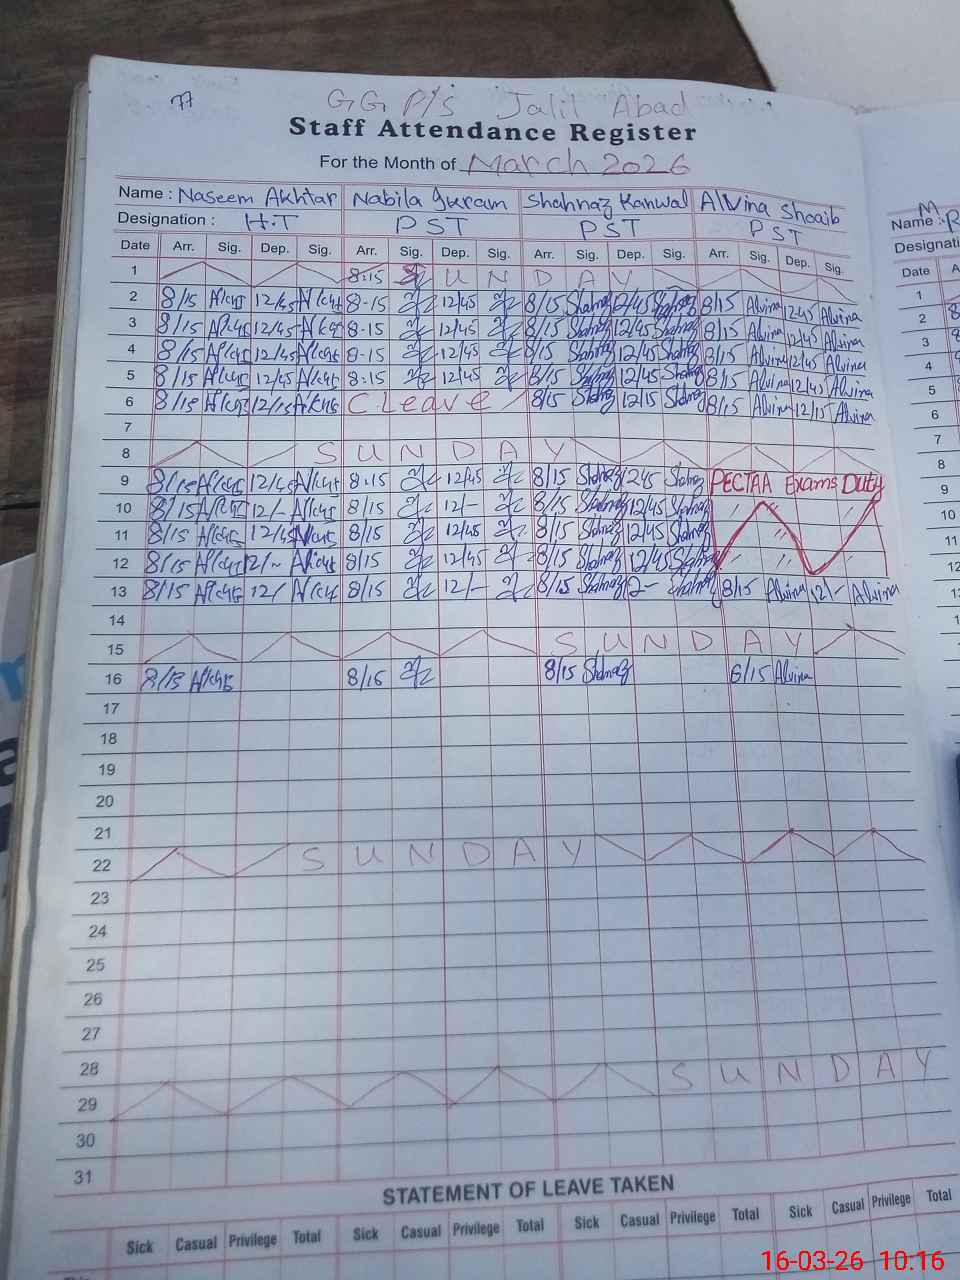 77
GG P/S Jalil Abad
Staff Attendance Register
For the Month of March 2026
Name : Naseem Akhtar Nabila Ikram Shahnaz Kanwal Alvina Shoaib
Designation : H.T PST PST PST
Date Arr. Sig. Dep. Sig. Arr. Sig. Dep. Sig. Arr. Sig. Dep. Sig. Arr. Sig. Dep. Sig.
1 8:15 SUNDAY
2 8/15 12/45 8-15 12/45 8/15 Shahnaz 12/45 Shahnaz 8/15 Alvina 12/45 Alvina
3 8/15 12/45 8-15 12/45 8/15 Shahnaz 12/45 Shahnaz 8/15 Alvina 12/45 Alvina
4 8/15 12/45 8-15 12/45 8/15 Shahnaz 12/45 Shahnaz 8/15 Alvina 12/45 Alvina
5 8/15 12/45 8:15 12/45 8/15 Shahnaz 12/45 Shahnaz 8/15 Alvina 12/45 Alvina
6 8/15 12/15 C Leave 8/15 Shahnaz 12/15 Shahnaz 8/15 Alvina 12/15 Alvina
7
8 SUNDAY
9 8/15 12/45 8:15 12/45 8/15 Shahnaz 1245 Shahnaz PECTAA Exams Duty
10 8/15 12/- 8/15 12/- 8/15 Shahnaz 12/45 Shahnaz " " "
11 8/15 12/45 8/15 12/45 8/15 Shahnaz 12/45 Shahnaz "
12 8/15 12/- 8/15 12/45 8/15 Shahnaz 12/45 Shahnaz " " "
13 8/15 12/ 8/15 12/- 8/15 Shahnaz 12- Shahnaz 8/15 Alvina 12/- Alvina
14
15 SUNDAY
16 8/15 8/15 8/15 Shahnaz 8/15 Alvina
17
18
19
20
21
22 SUNDAY
23
24
25
26
27
28
29 SUNDAY
30
31
STATEMENT OF LEAVE TAKEN
Sick Casual Privilege Total Sick Casual Privilege Total Sick Casual Privilege Total
M
Name :
Designati
Date A
1
2
3
4
5
6
7
8
9
10
11
12
16-03-26 10:16